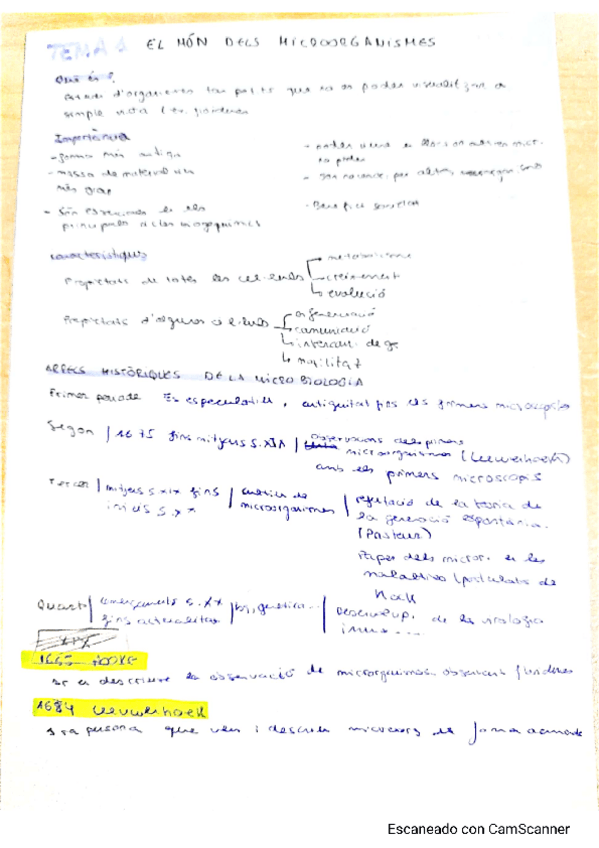 TEMA 1 EL MÓN DELS MICROORGANISMES
Què és?
d'organismes tan petits que no es poden visualitzar a
simple vista
Importància
- forma més antiga
- massa de material viu
més gran
- Són essencials en els
principals cicles biogeoquímics
- poden viure en llocs on altres
no poden
- Són
- Beneficis societat
característiques
Propietats de totes les cèl·lules
metabolisme
creixement
evolució
Propietats d'algunes cèl·lules
diferenciació
comunicació
intercan. de gs
motilitat
ARRELS HISTÒRIQUES DE LA MICROBIOLOGIA
Primer període Es especulatiu, antiguitat pas els primers microscopis
Segon | 1675 fins mitjans S.XIX | Observacions dels primers
microorganismes (Leeuwenhoek)
amb els primers microscopis
Tercer | mitjans S.XIX fins | cultiu de | refutació de la teoria de
inicis S.XX microorganismes la generació espontània.
(Pasteur)
Paper dels micror. en les
malalties (postulats de
Koch
Quart | començaments S.XX | genètica... | Desenvolup. de la virologia
fins actualitat
1665 HOOKE
se en descriure la observació de microorganismes observant
1684 Leeuwenhoek
1ra persona que veu i descriu de forma
Escaneado con CamScanner